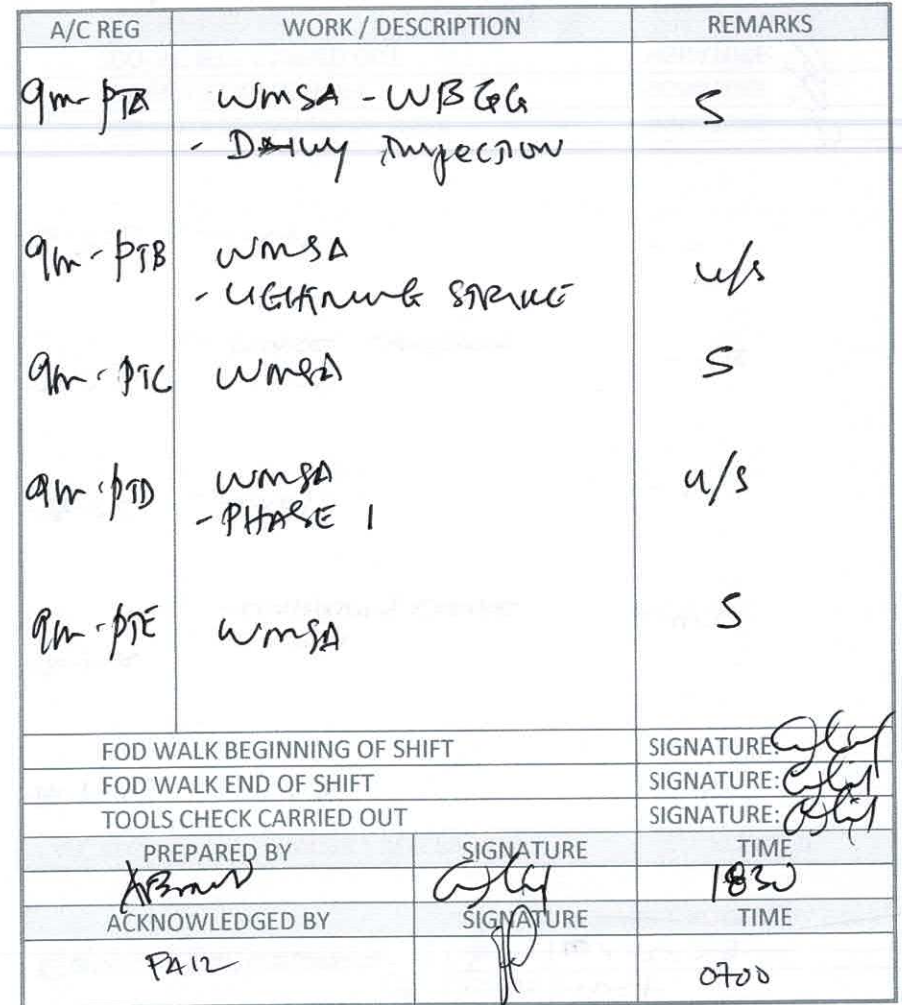 A/C REG WORK / DESCRIPTION REMARKS
9M-PTA WMSA - WBGG S
- DAILY INSPECTION
9M-PTB WMSA u/s
- LIGHTNING STRIKE
9M-PTC WMSA S
9M-PTD WMSA u/s
- PHASE 1
9M-PTE WMSA S
FOD WALK BEGINNING OF SHIFT SIGNATURE:
FOD WALK END OF SHIFT SIGNATURE:
TOOLS CHECK CARRIED OUT SIGNATURE:
PREPARED BY SIGNATURE TIME
1830
ACKNOWLEDGED BY SIGNATURE TIME
0700